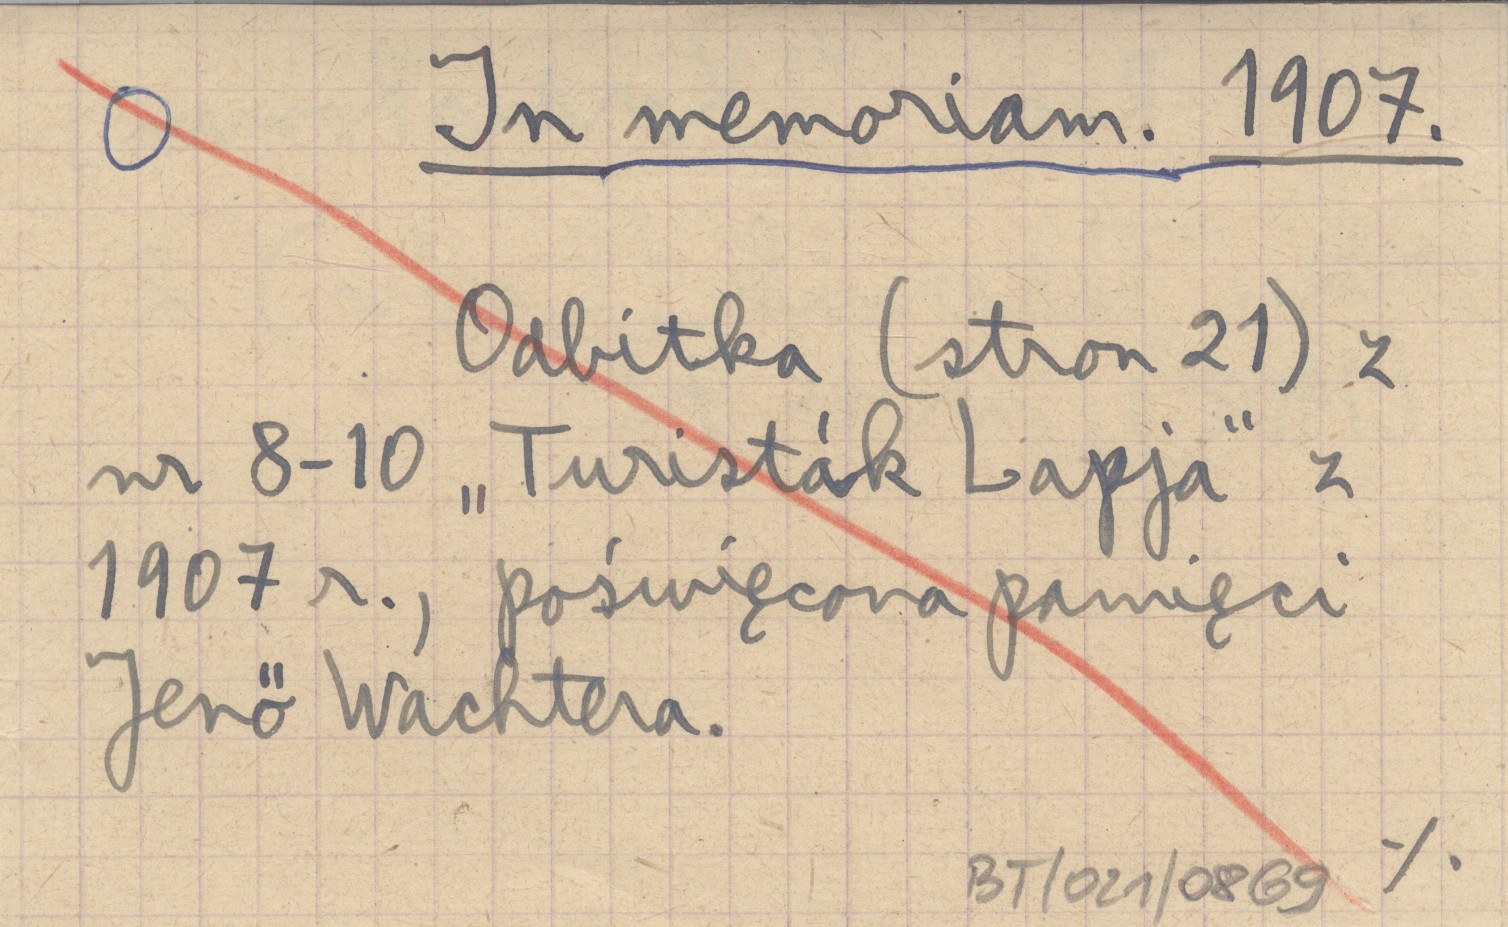 In memoriam. 1907.
Odbitka (stron 21) z
nr 8-10 „Turisták Lapja" z
1907 r., poświęcona pamięci
Jenő Wachtera.
·/.
BT/021/0869